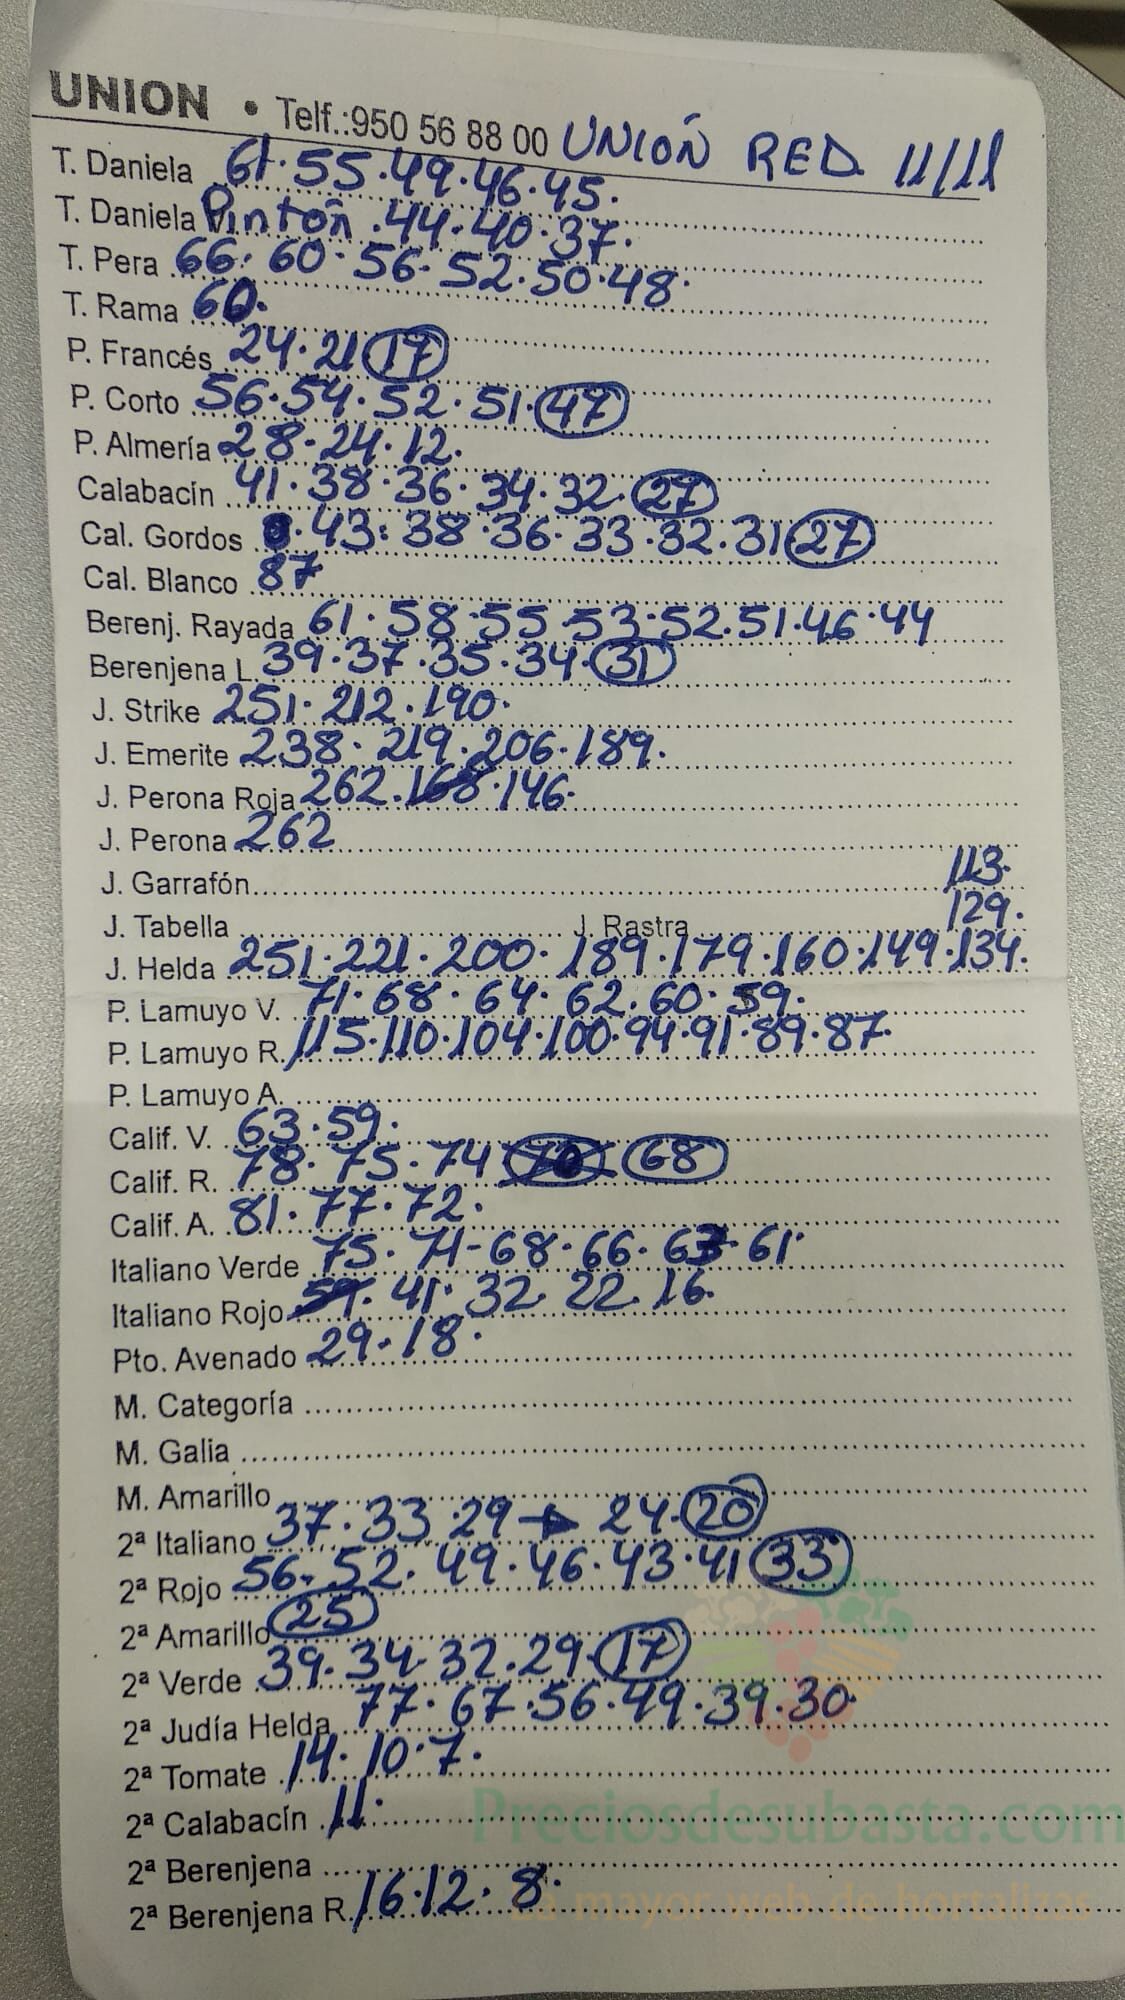 UNION • Telf.:950 56 88 00 UNIÓN RED 11/11
T. Daniela 61·55·49·46·45·
T. Daniela Pintón ·44·40·37·
T. Pera 66·60·56·52·50·48·
T. Rama 60·
P. Francés 24·21 17
P. Corto 56·54·52·51·47
P. Almería 28·24·12·
Calabacín 41·38·36·34·32·27
Cal. Gordos ·43·38·36·33·32·31 27
Cal. Blanco 87
Berenj. Rayada 61·58·55·53·52·51·46·44
Berenjena L. 39·37·35·34·31
J. Strike 251·212·190·
J. Emerite 238·219·206·189·
J. Perona Roja 262·168·146·
J. Perona 262
J. Garrafón 113·
J. Tabella J. Rastra 129·
J. Helda 251·221·200·189·179·160·149·134·
P. Lamuyo V. 71·68·64·62·60·59·
P. Lamuyo R. 115·110·104·100·94·91·89·87·
P. Lamuyo A.
Calif. V. 63·59·
Calif. R. 78·75·74 70 68
Calif. A. 81·77·72·
Italiano Verde 75·71-68·66·63·61·
Italiano Rojo 59·41·32·22·16·
Pto. Avenado 29·18·
M. Categoría
M. Galia
M. Amarillo
2ª Italiano 37·33·29→24·20
2ª Rojo 56·52·49·46·43·41 33
2ª Amarillo 25
2ª Verde 39·34·32·29·17
2ª Judía Helda 77·67·56·49·39·30·
2ª Tomate 14·10·7·
2ª Calabacín 11·
Preciosdesubasta.com
2ª Berenjena
La mayor web de hortalizas
2ª Berenjena R. 16·12·8·